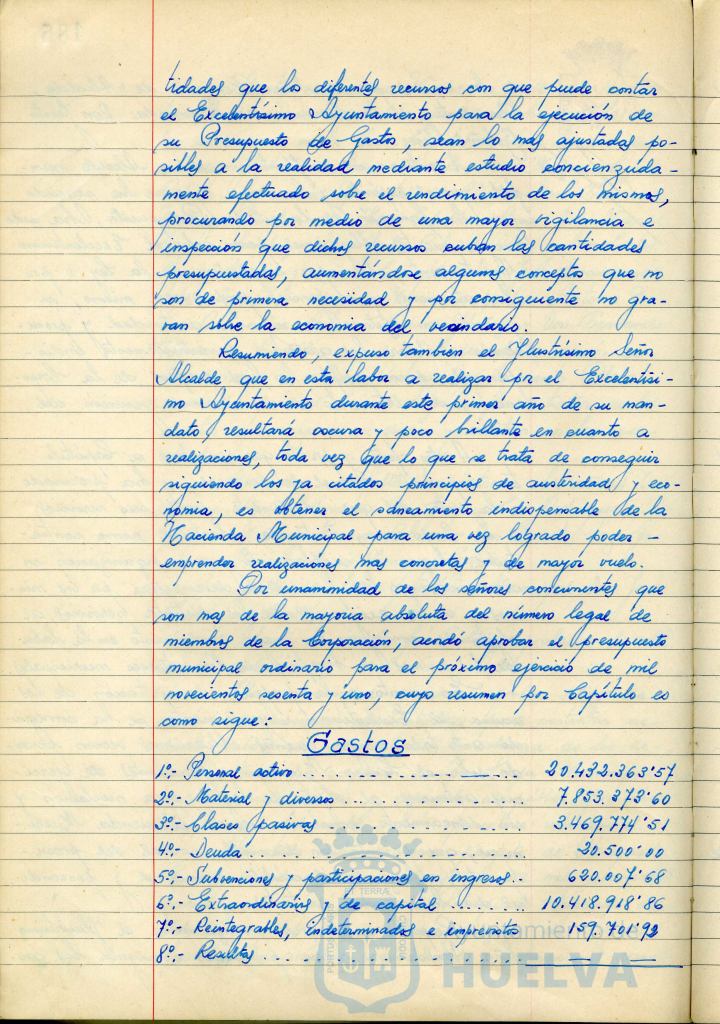 tidades que los diferentes recursos con que puede contar
el Excelentísimo Ayuntamiento para la ejecución de
su Presupuesto de Gastos, sean lo mas ajustadas po-
sibles a la realidad mediante estudio concienzuda-
mente efectuado sobre el rendimiento de los mismos,
procurando por medio de una mayor vigilancia e
inspección que dichos recursos cubran las cantidades
presupuestadas, aumentándose algunos conceptos que no
son de primera necesidad y por consiguiente no gra-
van sobre la economia del vecindario.
Resumiendo, expuso tambien el Ilustrísimo Señor
Alcalde que en esta labor a realizar por el Excelentísi-
mo Ayuntamiento durante este primer año de su man-
dato, resultará oscura y poco brillante en cuanto a
realizaciones, toda vez que lo que se trata de conseguir
siguiendo los ya citados principios de austeridad y eco-
nomia, es obtener el saneamiento indispensable de la
Hacienda Municipal para una vez logrado poder -
emprender realizaciones mas concretas y de mayor vuelo.
Por unanimidad de los señores concurrentes que
son mas de la mayoria absoluta del número legal de
miembros de la Corporación, acordó aprobar el presupuesto
municipal ordinario para el próximo ejercicio de mil
novecientos sesenta y uno, cuyo resumen por Capítulo es
como sigue:
Gastos
1º.- Personal activo .......... 20.432.363'57
2º.- Material y diversos .......... 7.853.373'60
3º.- Clases pasivas .......... 3.469.774'51
4º.- Deuda .......... 20.500'00
5º.- Subvenciones y participaciones en ingresos.- 620.007'68
6º.- Extraordinarios y de capital ....... 10.418.918'86
7º.- Reintegrables, indeterminados e imprevistos 159.701'92
8º.- Resultas .......... — —
Ayuntamiento de
HUELVA